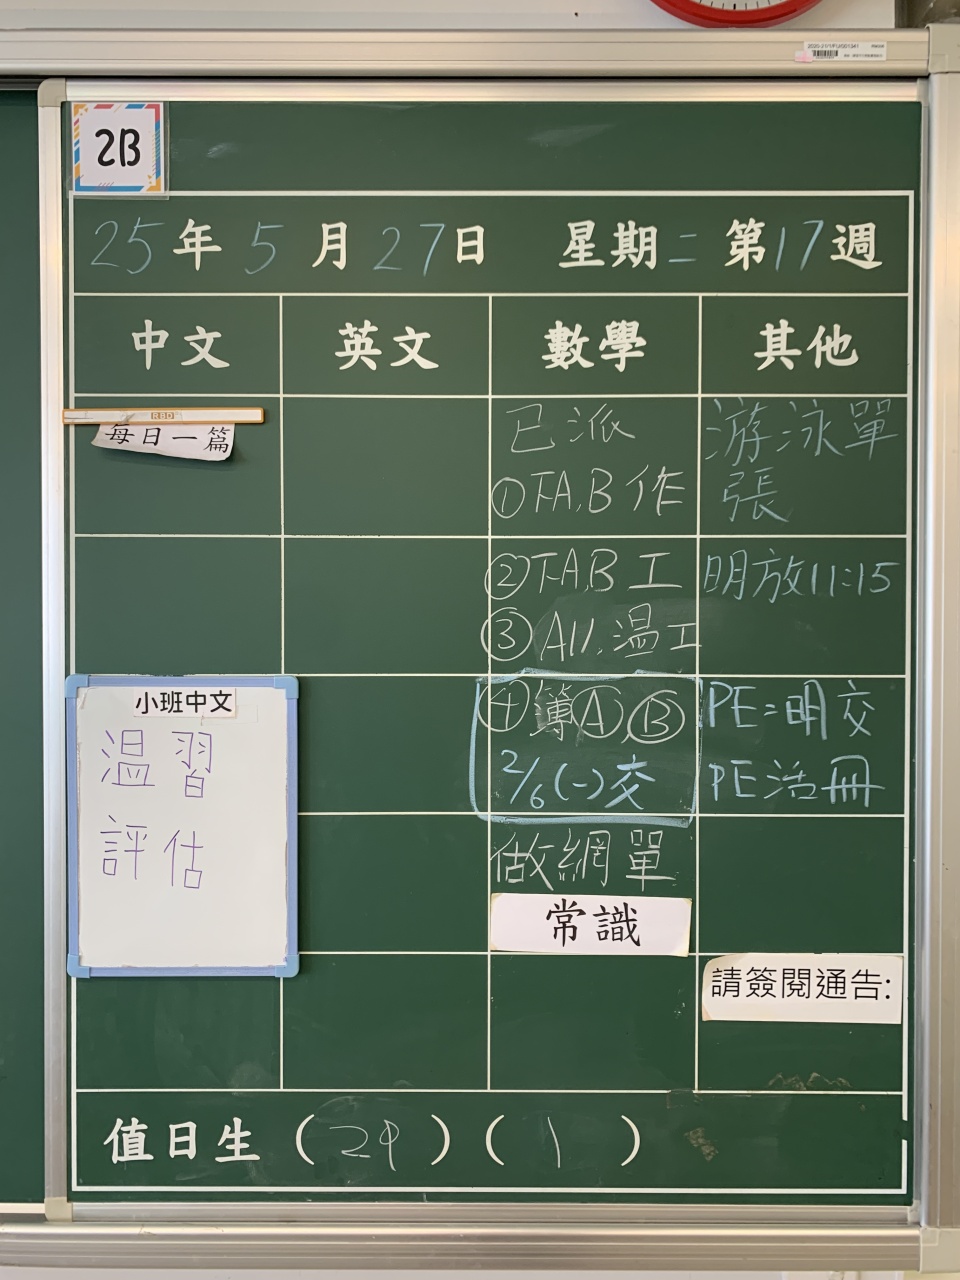 2B
25年5月27日 星期二 第17週
中文 英文 數學 其他
RBD
每日一篇
已派
①下A,B作
②下A,B工
③A11.溫工
④簿Ⓐ,Ⓑ
2/6(一)交
做網單
常識
游泳單
張
明放11:15
PE=明交
PE活冊
請簽閱通告:
小班中文
溫習
評估
值日生(29)(1)